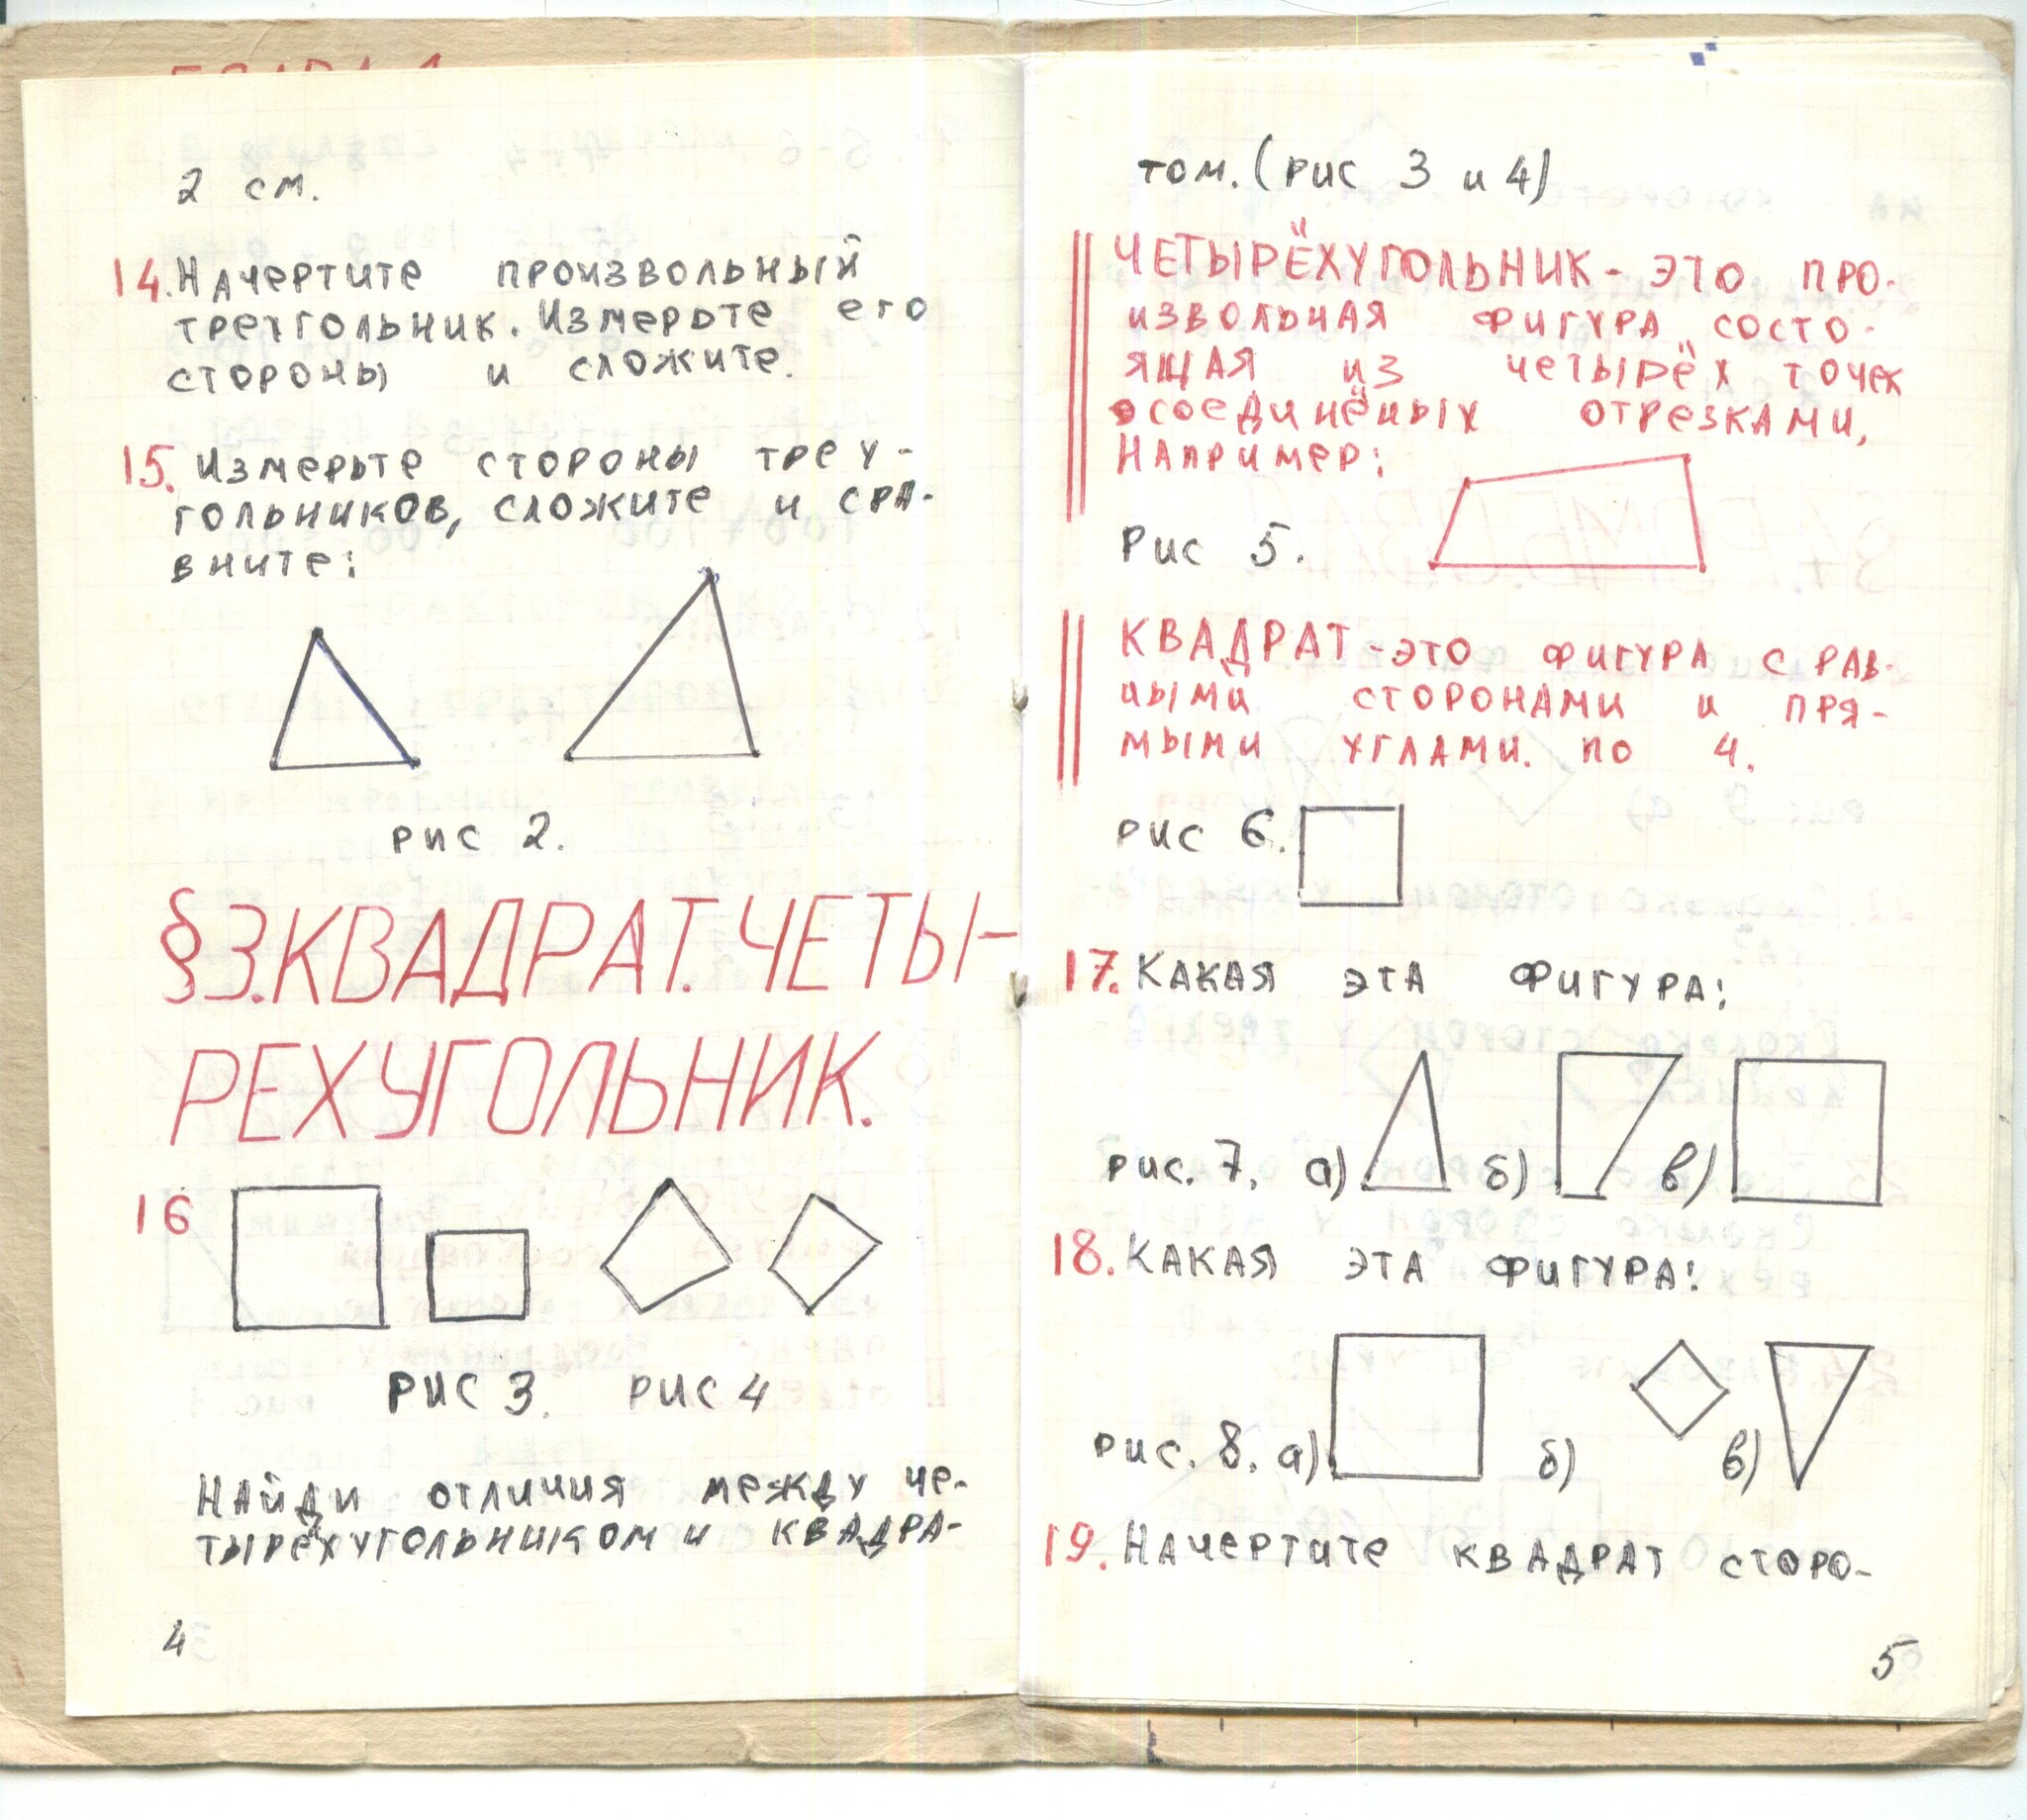 2 см.
14. Начертите произвольный
треугольник. Измерьте его
стороны и сложите.
15. Измерьте стороны треу-
гольников, сложите и сра-
вните:
рис 2.
§3. КВАДРАТ. ЧЕТЫ-
РЕХУГОЛЬНИК.
16
рис 3. рис 4
Найди отличия между че-
тырёхугольником и квадра-
4
том. (рис 3 и 4)
ЧЕТЫРЁХУГОЛЬНИК - это про-
извольная фигура состо-
ящая из четырёх точек
соединёных отрезками,
Например:
Рис 5.
КВАДРАТ - это фигура с рав-
ными сторонами и пря-
мыми углами. по 4.
рис 6.
17. Какая эта фигура:
рис. 7. а) б) в)
18. Какая эта фигура:
рис. 8. а) б) в)
19. Начертите квадрат сторо-
5